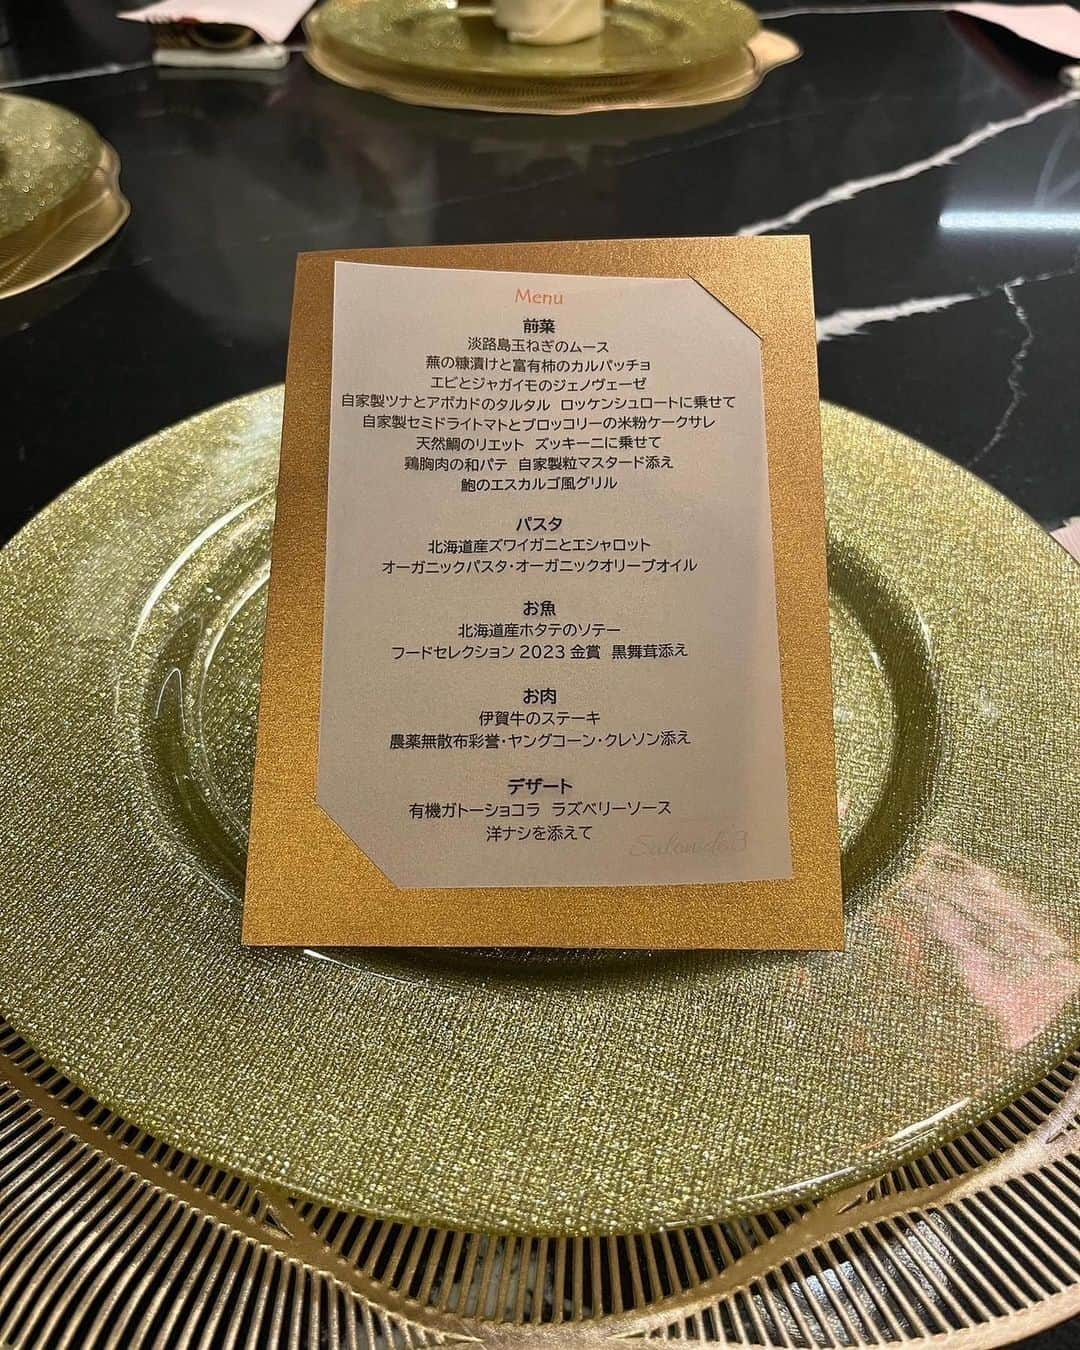 Menu
前菜
淡路島玉ねぎのムース
蕪の糠漬けと富有柿のカルパッチョ
エビとジャガイモのジェノヴェーゼ
自家製ツナとアボカドのタルタル ロッケンシュロートに乗せて
自家製セミドライトマトとブロッコリーの米粉ケークサレ
天然鯛のリエット ズッキーニに乗せて
鶏胸肉の和パテ 自家製粒マスタード添え
鮑のエスカルゴ風グリル
パスタ
北海道産ズワイガニとエシャロット
オーガニックパスタ・オーガニックオリーブオイル
お魚
北海道産ホタテのソテー
フードセレクション2023金賞 黒舞茸添え
お肉
伊賀牛のステーキ
農薬無散布彩誉・ヤングコーン・クレソン添え
デザート
有機ガトーショコラ ラズベリーソース
洋ナシを添えて
Salon de